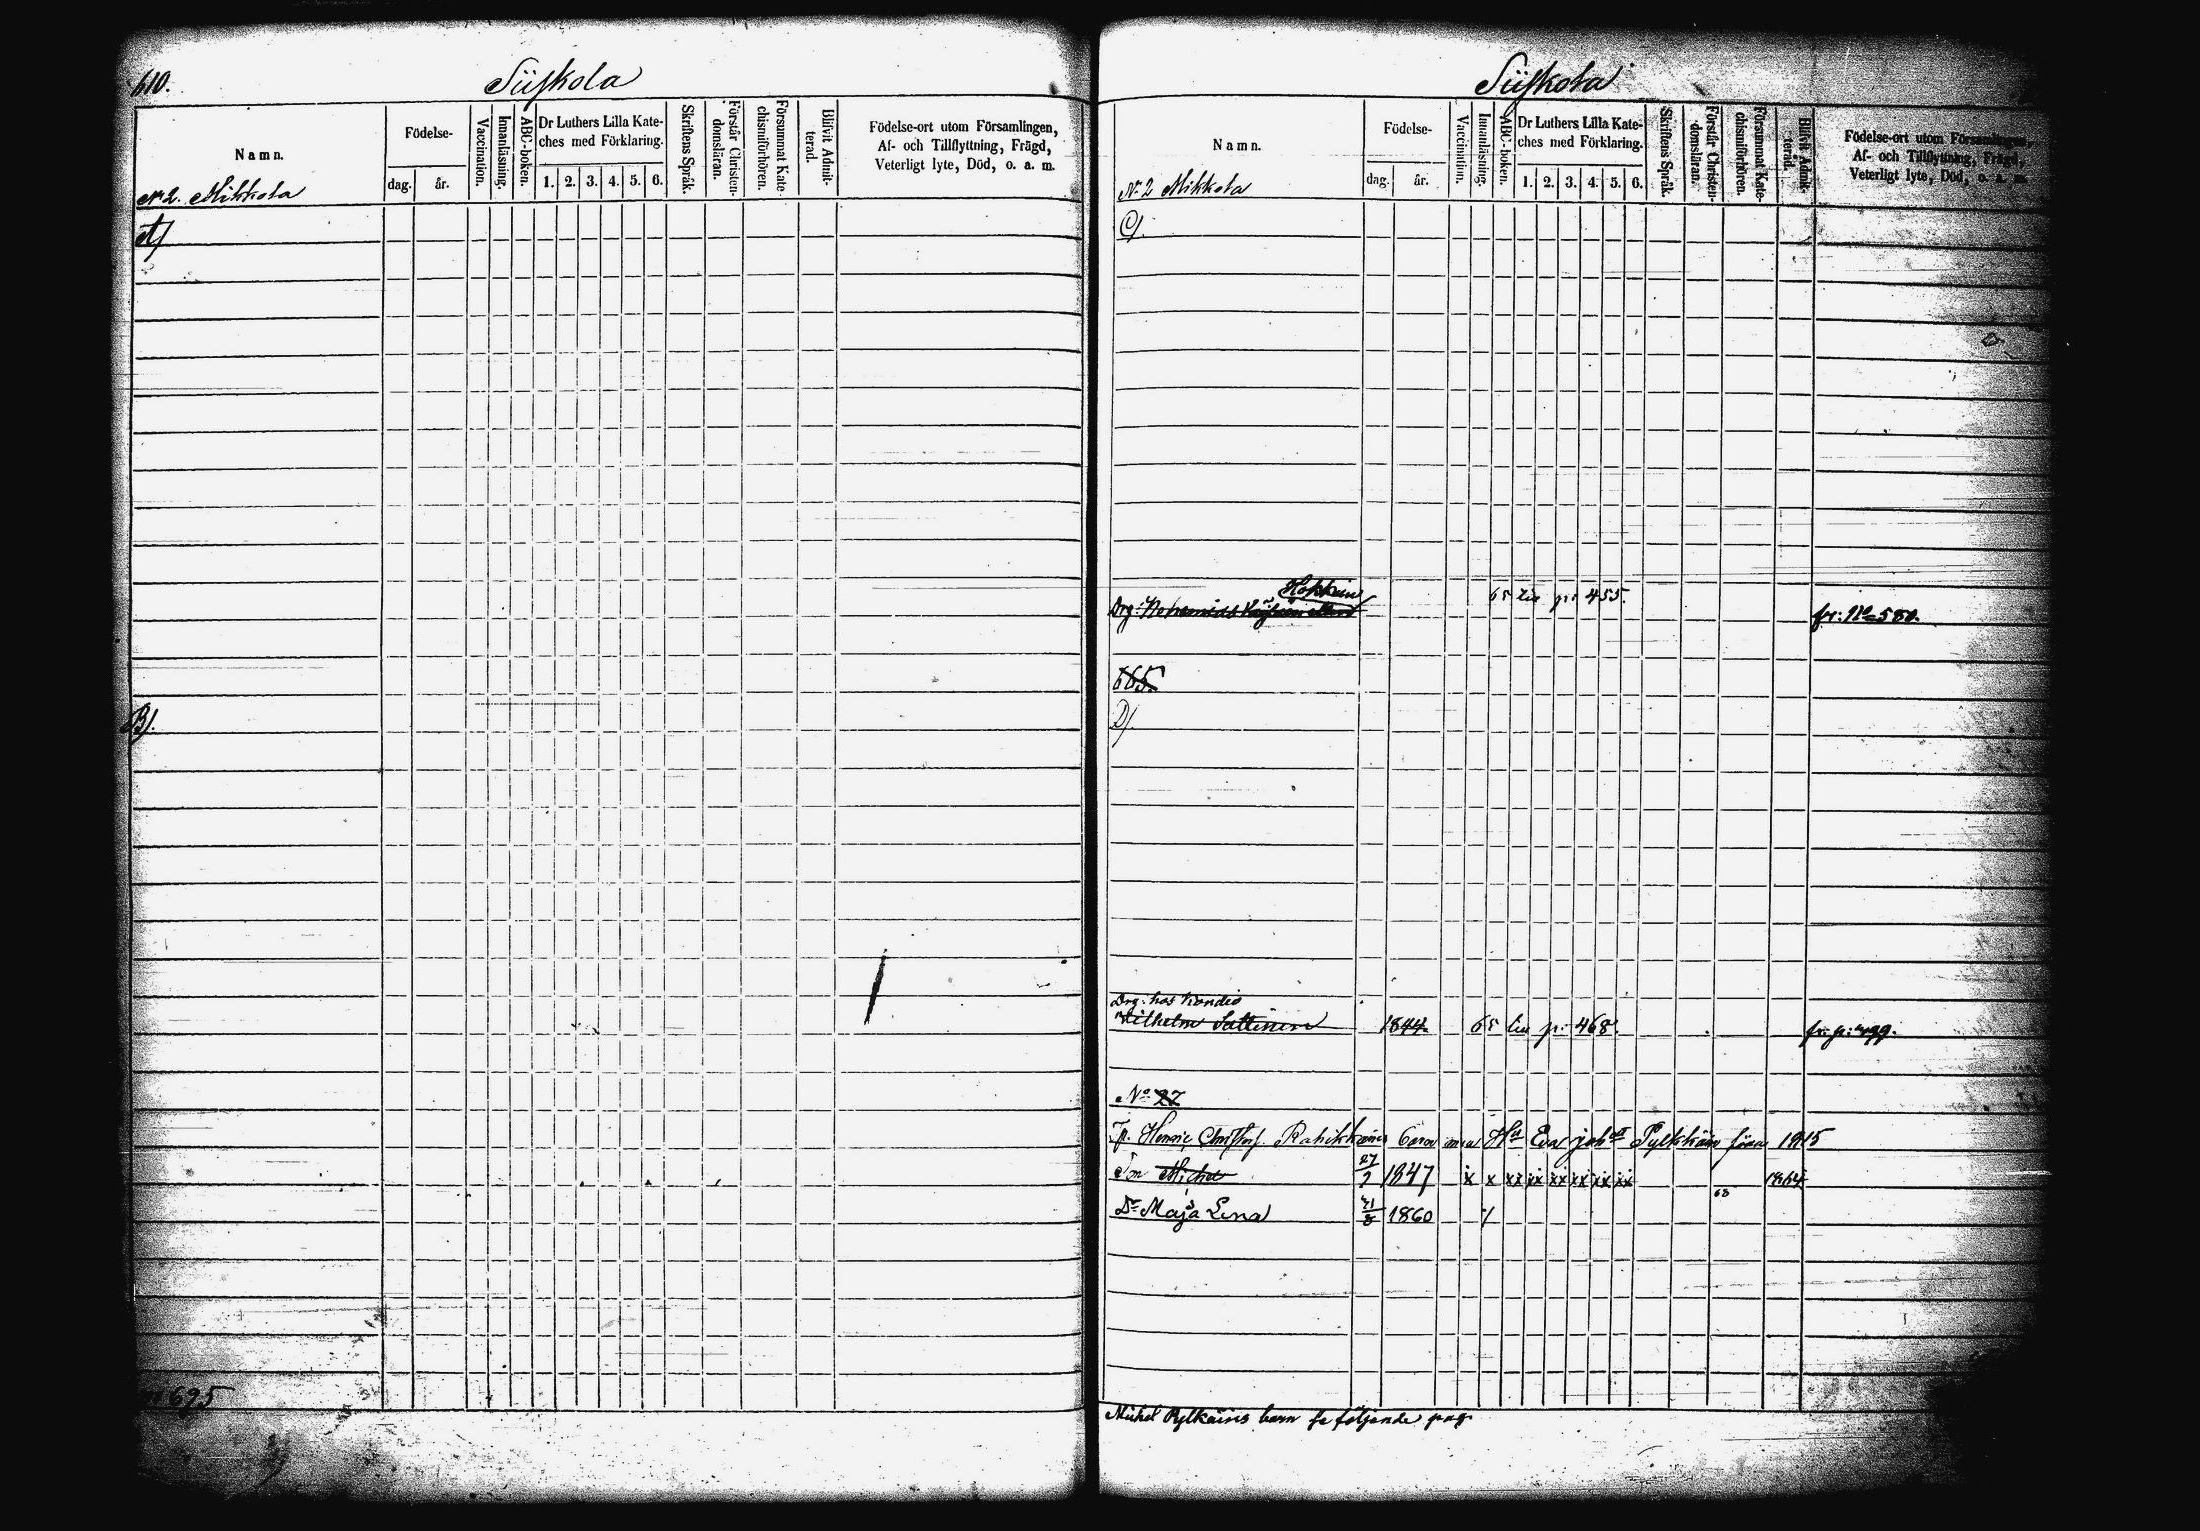 610.
Siiskola
Namn.
Födelse-
dag.
år.
Vaccination.
Innanläsning.
ABC-boken.
Dr Luthers Lilla Kate-
ches med Förklaring.
1. 2. 3. 4. 5. 6.
Skriftens Språk.
Förstår Christen-
domsläran.
Försummat Kate-
chismiförhören.
Blifvit Admit-
terad.
Födelse-ort utom Församlingen,
Af- och Tillflyttning, Frägd,
Veterligt lyte, Död, o. a. m.
No 2. Mikkola
A)
B).
695
Siiskola
Namn.
Födelse-
dag.
år.
Vaccination.
Innanläsning.
ABC-boken.
Dr Luthers Lilla Kate-
ches med Förklaring.
1. 2. 3. 4. 5. 6.
Skriftens Språk.
Förstår Christen-
domsläran.
Försummat Kate-
chismiförhören.
Blifvit Admit-
terad.
Födelse-ort utom Församlingen,
Af- och Tillflyttning, Frägd,
Veterligt lyte, Död, o. a. m.
No 2 Mikkola
C).
Drg: 65 p: 455. fr: No 580.
665.
D)
Drg: hos
Wilhelm Sattinen 1844. 65 p: 468.
No 22
Henric Rahikkainen Eva Pylkkäin 1815
Son Michel 27/9 1847 x x xx xx xx xx xx xx 68 1864
Dr Maja Lena 21/8 1860
Michel Pylkäins barn se följande pag